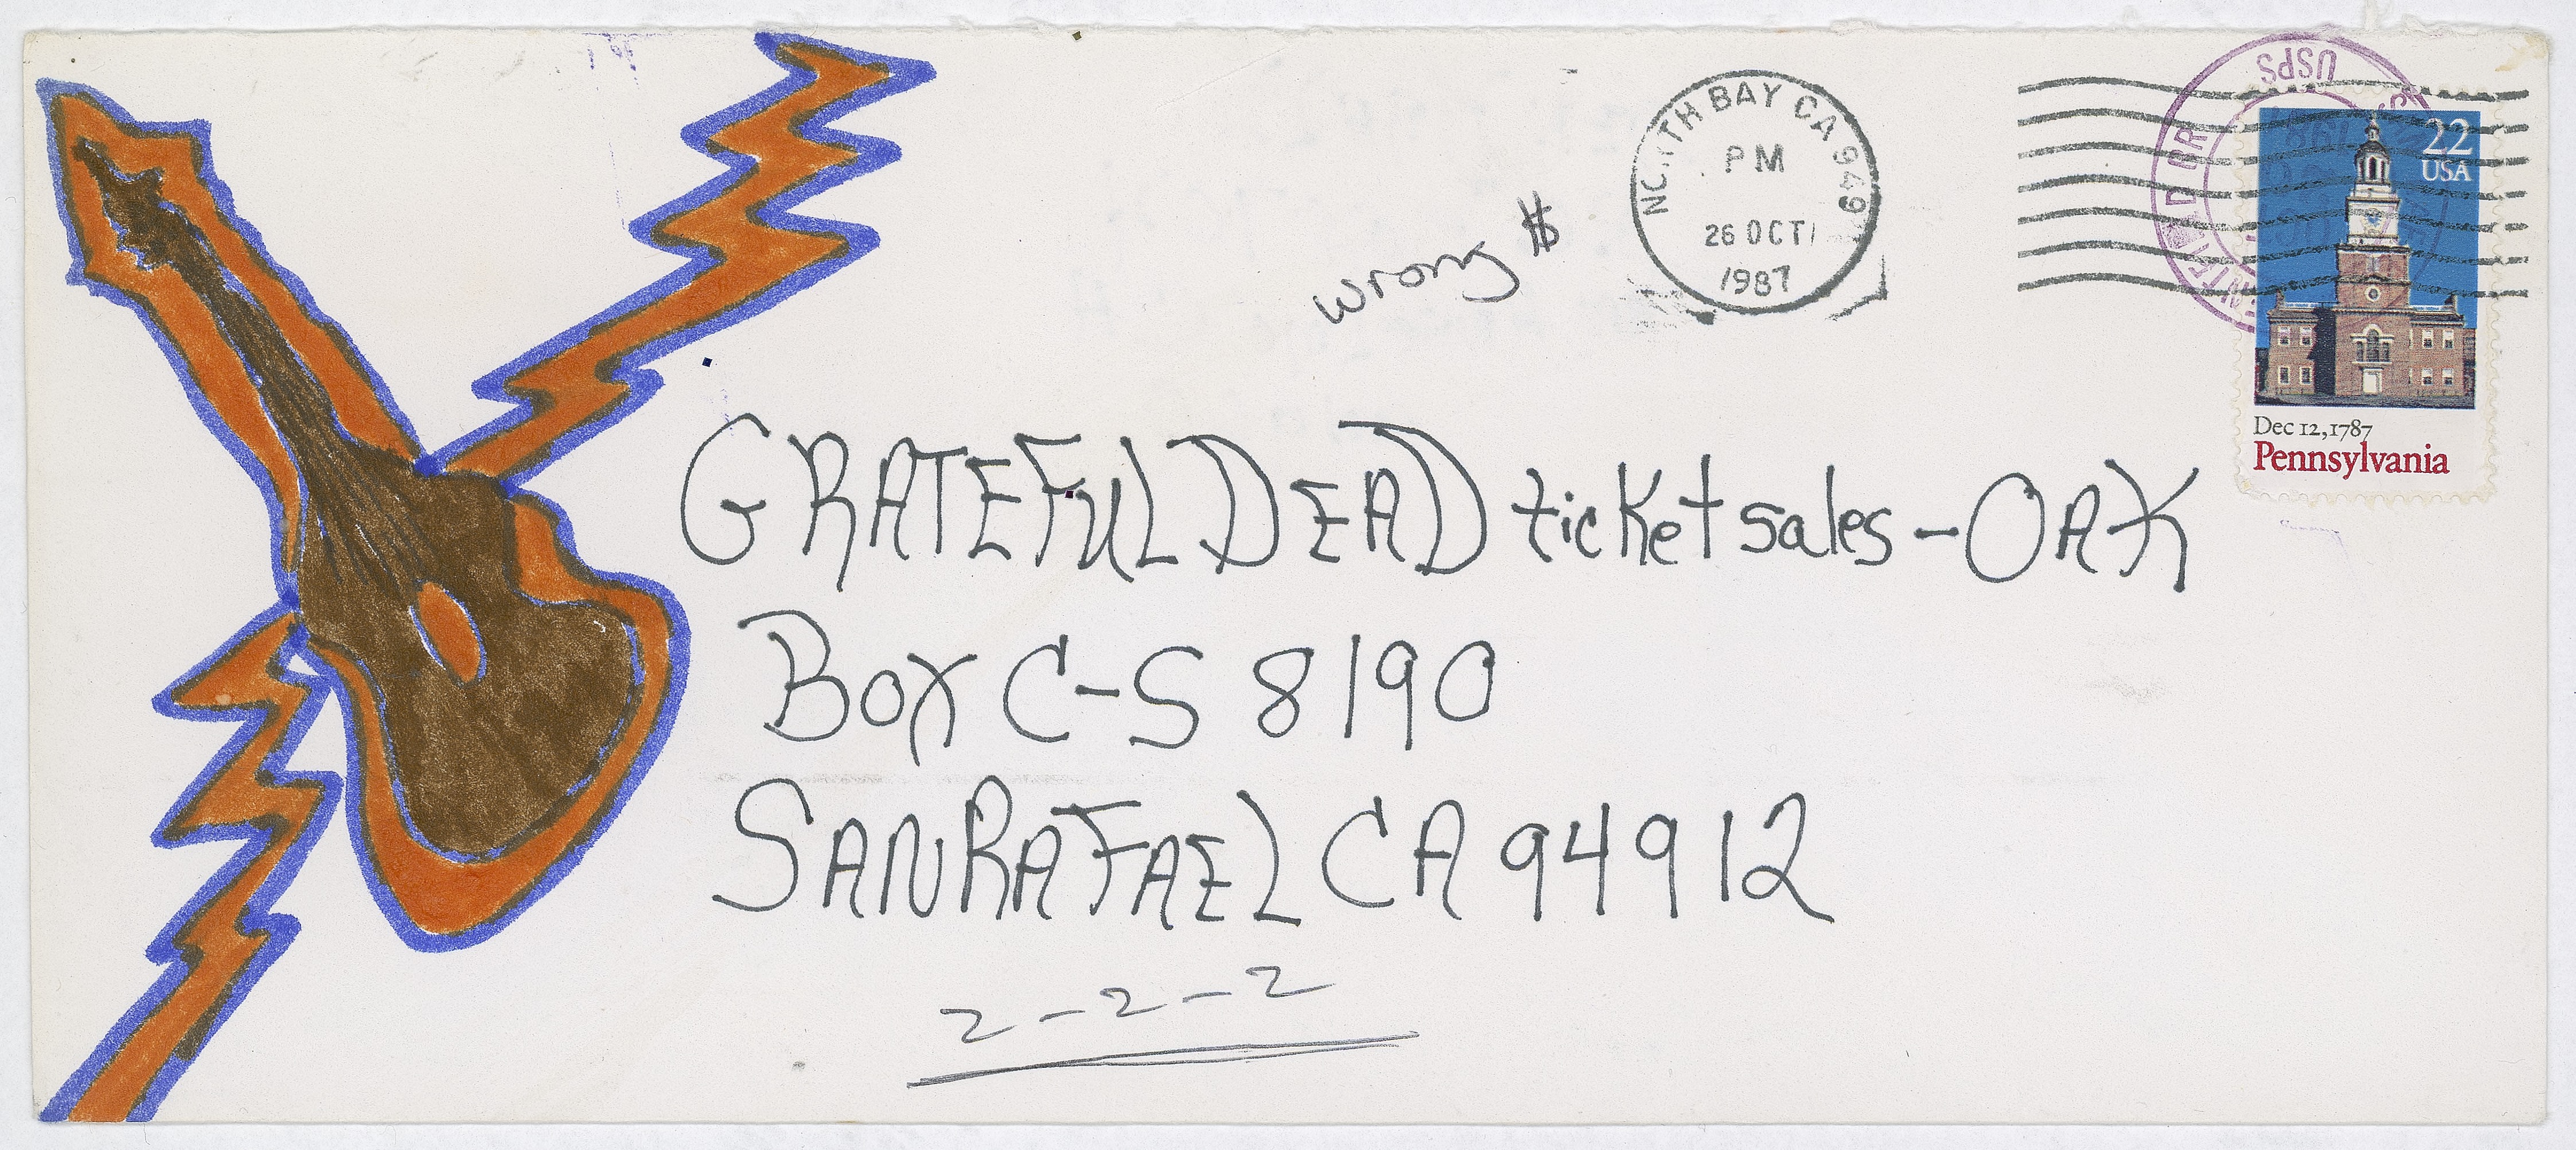 USPS
NORTH BAY CA 949
PM
26 OCT
1987
wrong $
22
USA
Dec 12, 1787
Pennsylvania
GRATEFUL DEAD ticket sales - OAK
Box C-S 8190
SAN RAFAEL CA 94912
2-2-2